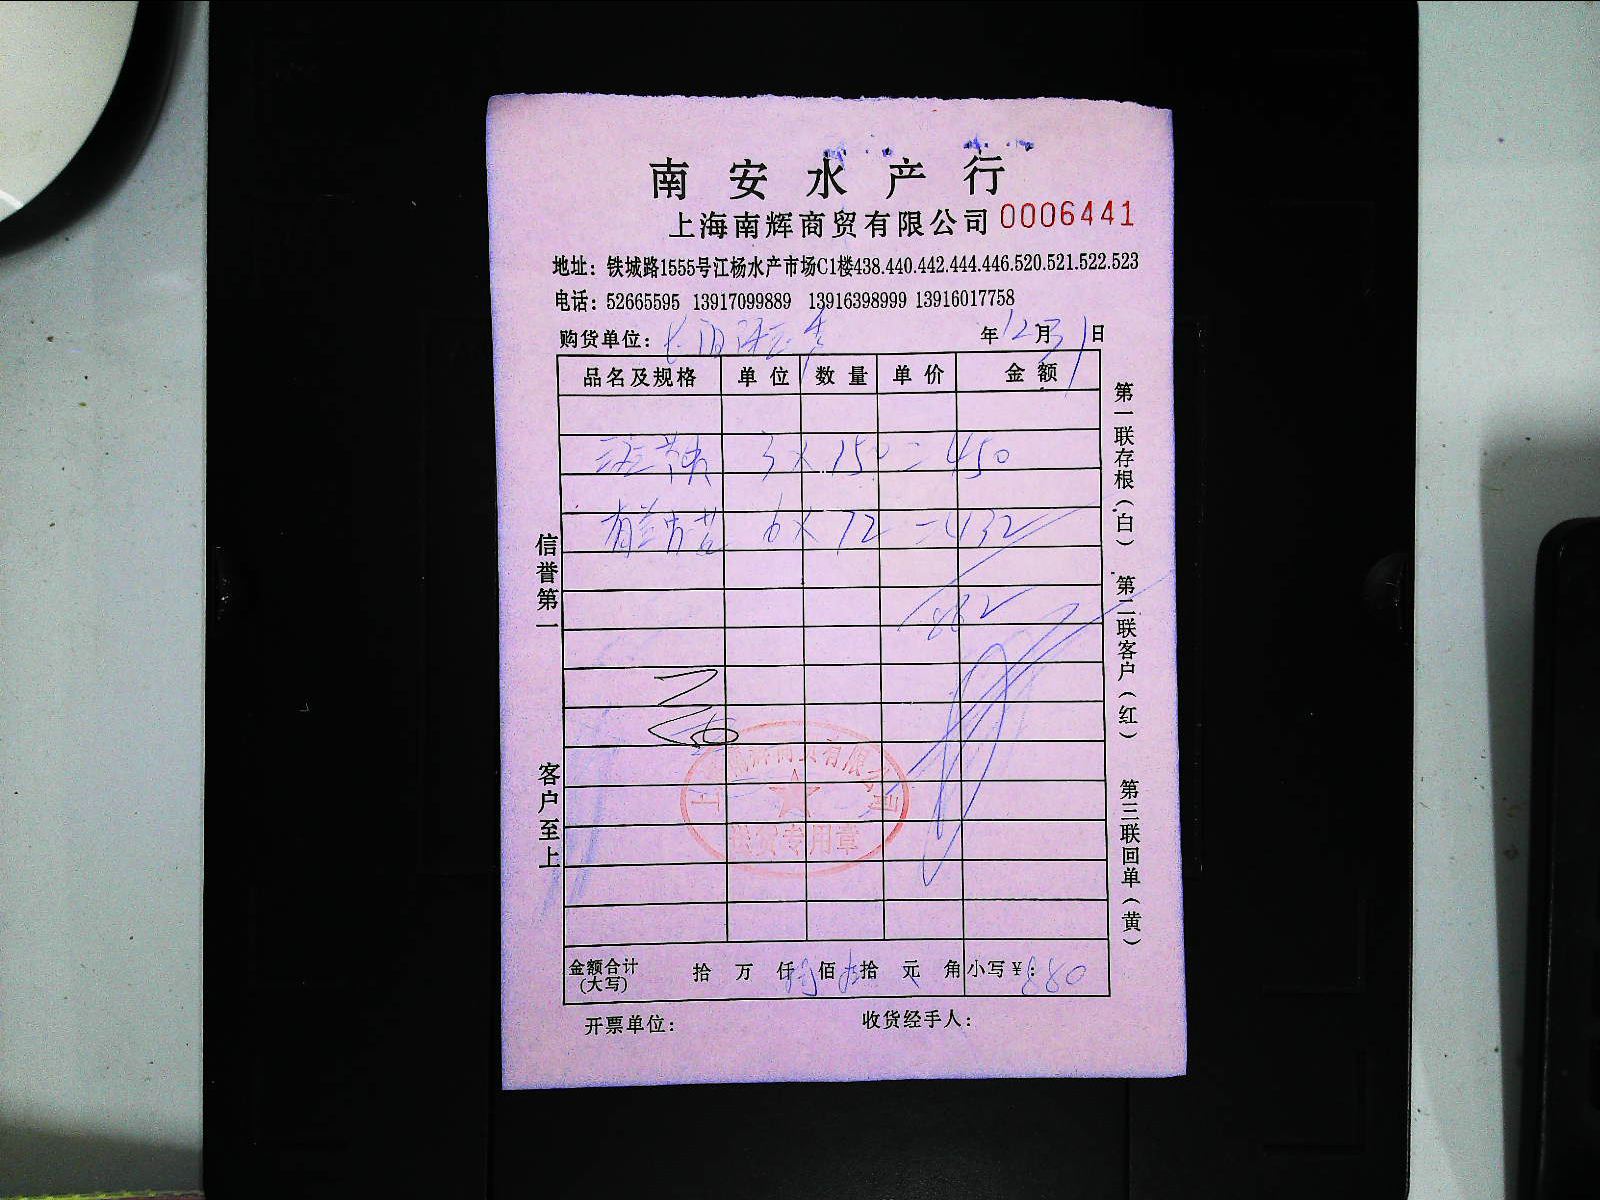 南安水产行
上海南辉商贸有限公司 0006441
地址：铁城路1555号江杨水产市场C1楼438.440.442.444.446.520.521.522.523
电话：52665595 13917099889 13916398999 13916017758
购货单位： 年12月31日
品名及规格 单位 数量 单价 金额
3×150=450
6×72=432
882
上海南辉商贸有限公司
送货专用章
金额合计(大写) 拾 万 仟 佰 拾 元 角 小写￥：880
开票单位： 收货经手人：
信誉第一
客户至上
第一联存根(白)
第二联客户(红)
第三联回单(黄)